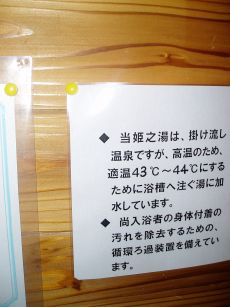 ◆ 当姫之湯は、掛け流し
温泉ですが、高温のため、
適温43℃～44℃にする
ために浴槽へ注ぐ湯に加
水しています。
◆ 尚入浴者の身体付着の
汚れを除去するための、
循環ろ過装置を備えてい
ます。